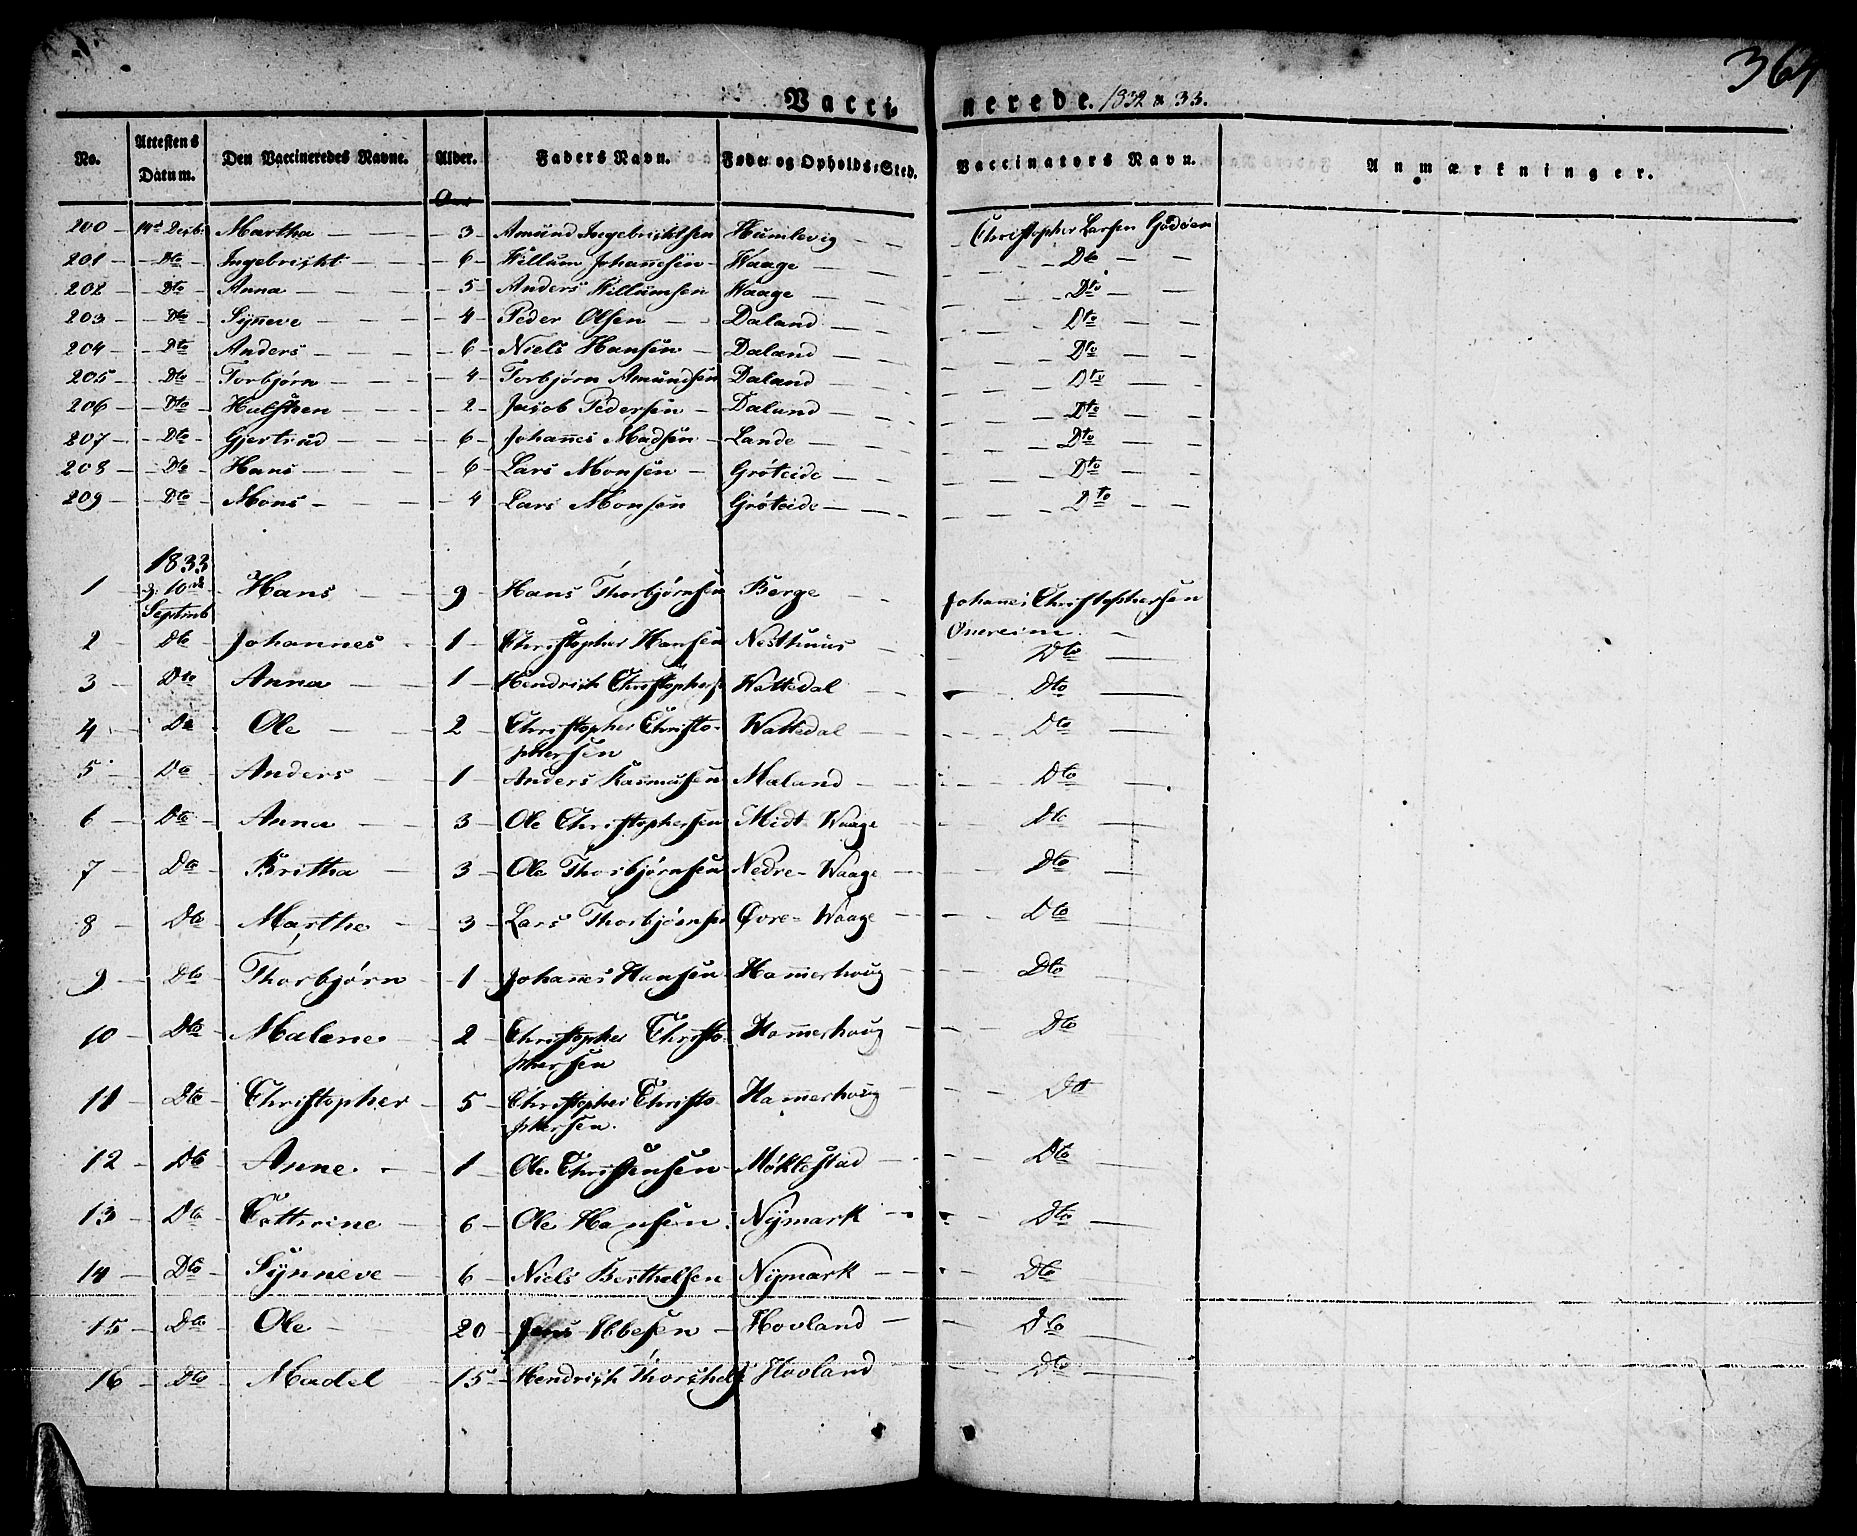 364
Vacci nerede. 1832 & 33.
No. Attestens Datum. Den Vaccineredes Navne. Alder. Faders Navn. Føde- og Opholds-Sted. Vaccinators Navn. Anmærkninger.
Aar
200 14de Decb. Martha 3 Amund Ingebrichtsen Humlevig Christopher Larsen Godøen
201 Dto Ingebricht 6 Willum Johannesen Waage Dto
202 Dto Anna 5 Anders Willumsen Waage Dto
203 Dto Synneve 4 Peder Olsen Daland Dto
204 Dto Anders 6 Niels Hansen Daland Dto
205 Dto Torbjørn 4 Torbjørn Amundsen Daland Dto
206 Dto 2 Jacob Pedersen Daland Dto
207 Dto Gjertrud 6 Johannes Madsen Lande Dto
208 Dto Hans 6 Lars Monsen Grøteide Dto
209 Dto Mons 4 Lars Monsen Grøteide Dto
1833
1 d. 10de Septemb Hans 9 Hans Thorbjørnsen Berge Johannes Christophersen
2 Dto Johannes 1 Christopher Hansen Nesthuus Dto
3 Dto Anna 1 Hendrich Christophers Wattedal Dto
4 Do Ole 2 Christopher Christo- Wattedal Dto
phersen
5 Do Anders 1 Anders Rasmusen Maland Dto
6 Dto Anna 3 Ole Christophersen Midt-Waage Dto
7 Do Britha 3 Ole Thorbjørnsen Nedre-Waage Dto
8 Dto Marthe 3 Lars Thorbjørnsen Øvre-Waage Dto
9 Dto Thorbjørn 1 Johannes Hansen Hammerhoug Dto
10 Dto Malene 2 Christopher Christo- Hammerhoug Dto
phersen
11 Dto Christopher 5 Christopher Christo- Hammerhoug Dto
phersen.
12 Dto Anne 1 Ole Christensen Møklestad Dto
13 Dto Cathrine 6 Ole Hansen Nymark Dto
14 Dto Synneve 6 Niels Berthelsen Nymark Dto
15 Dto Ole 20 Jens Ibbesen Hovland Dto
16 Dto Madel 15 Hendrich Hovland Dto